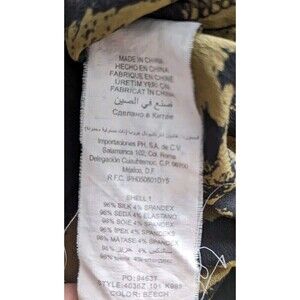 MADE IN CHINA
HECHO EN CHINA
FABRIQUE EN CHINE
URETIM YERI ÇIN
FABRICAT ÎN CHINA
صنع في الصين
Сделано в Китае
Importaciones PH, S.A. de C.V.
Salamanca 102, Col. Roma
Delegación Cuauhtemoc, C.P. 06700
México, D.F.
R.F.C.
SHELL 1
96% SILK 4% SPANDEX
96% SEDA 4% ELASTANO
96% SOIE 4% SPANDEX
96% IPEK 4% SPANDEKS
96% MATASE 4% SPANDEX
PO: 94637
STYLE: 40362 101 K983
COLOR: BEECH